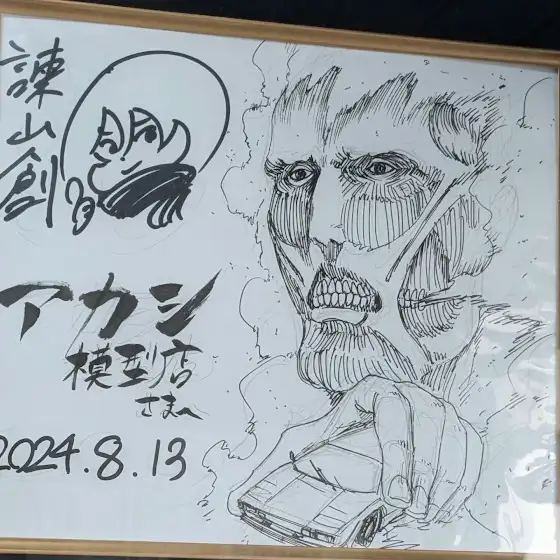 諫山創
アカシ
模型店
さまへ
2024.8.13